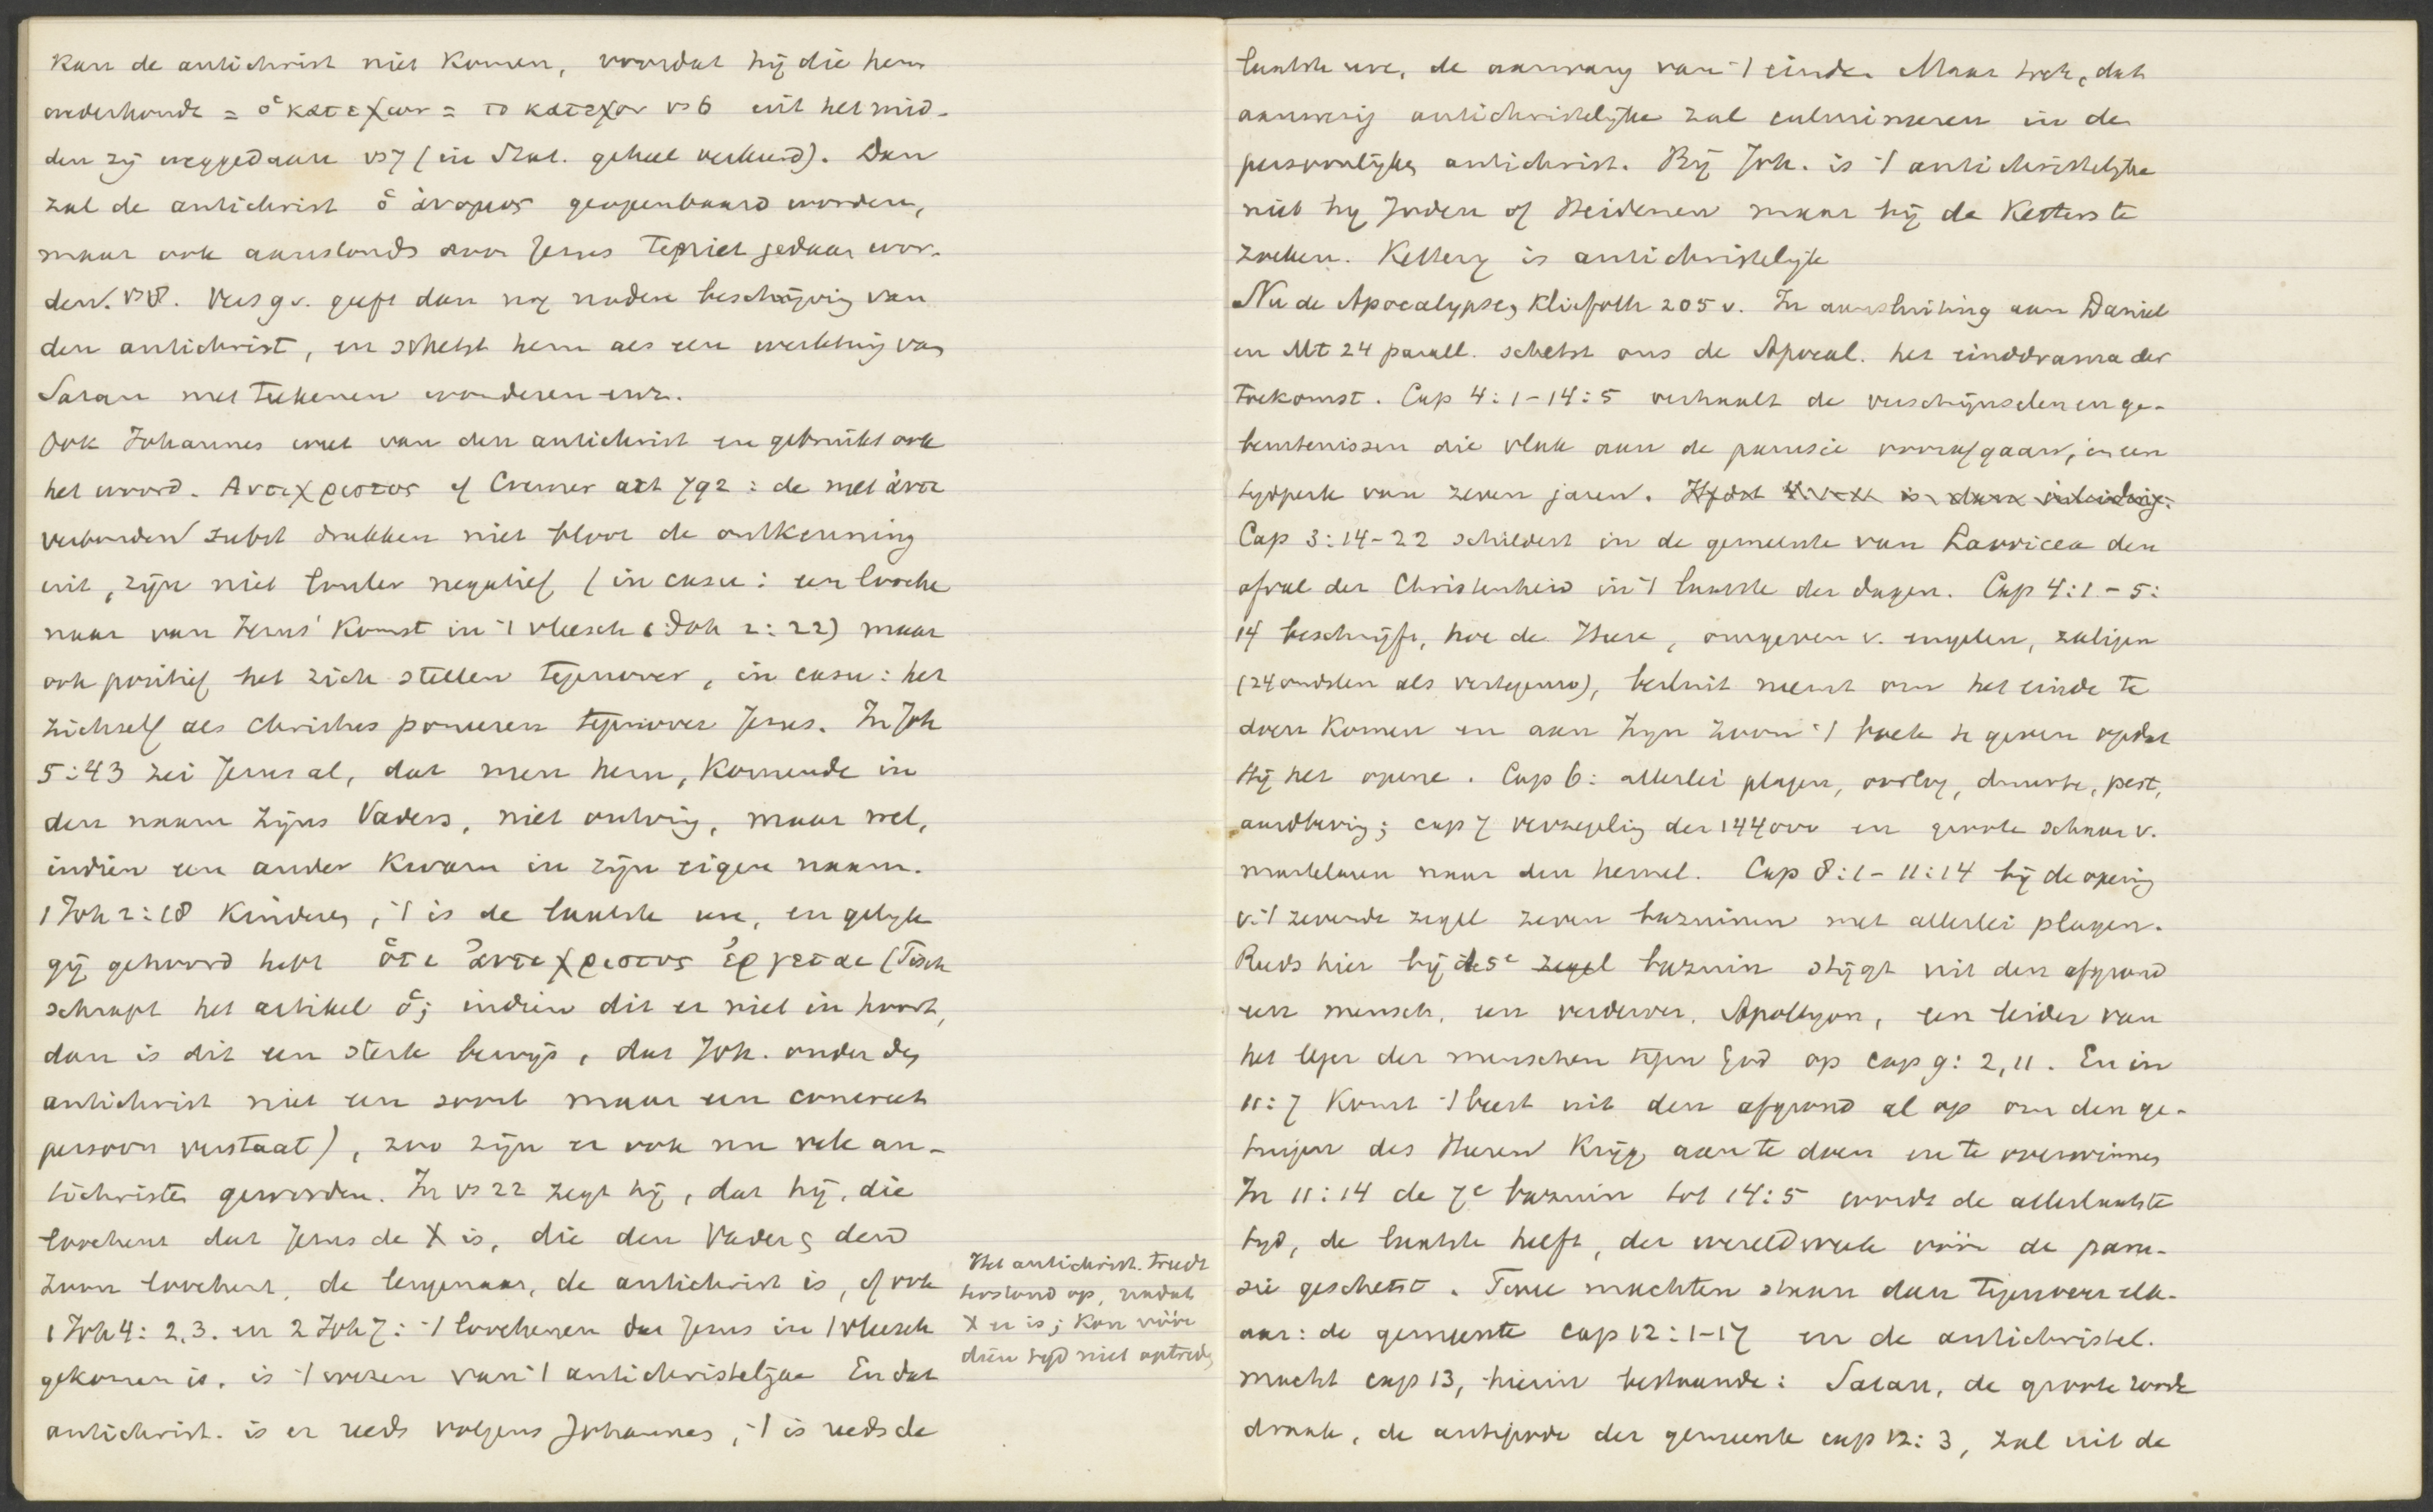 kan de antichrist niet komen, voordat hij die hem
wederhoude = ὁ κατεχων = το κατεχον vs 6 uit het mid-
den zij weggedaan vs 7 (in Stat. geheel verkeerd). Dan
zal de antichrist ὁ ἀνομος geopenbaard worden,
maar ook aanstonds door Jezus teniet gedaan wor-
den. vs 8. Vers 9 v. geeft dan nog nadere beschrijving van
den antichrist, en schetst hem als een werktuig van
Satan met teekenen wonderen enz.
Ook Johannes weet van den antichrist en gebruikt ook
het woord. Αντιχριστος cf Cremer 792: de met ἀντι
verbonden subst drukken niet bloot de ontkenning
uit, zijn niet louter negatief (in casu: een looche
naar van Jezus' komst in 't vleesch 1 Joh 2:22) maar
ook positief het zich stellen tegenover, in casu: het
zichzelf als Christus poneeren tegenover Jezus. In Joh
5:43 zei Jezus al, dat men hem, komende in
den naam zijns Vaders, niet ontving, maar wel,
indien een ander kwam in zijn eigen naam.
1 Joh 2:18 Kinderen, 't is de laatste ure, en gelijk
gij gehoord hebt ὁτι ἀντιχριστος ἐρχεται (Tisch
schrapt het artikel ὁ; indien dit er niet in hoort,
dan is dit een sterk bewijs, dat Joh. onder den
antichrist niet een soort maar een concreet
persoon verstaat), zoo zijn er ook nu vele an-
tichristen geworden. In vs 22 zegt hij, dat hij, die
loochent dat Jezus de X is, die den Vader & den
Zoon loochent, de leugenaar, de antichrist is, cf ook
1 Joh 4: 2, 3. en 2 Joh 7: 't loochenen dat Jezus in 't vleesch
gekomen is, is 't wezen van 't antichristelijke En dat
antichrist. is er reeds volgens Johannes, 't is reeds de
Het antichrist. treedt
terstond op, nadat
X er is; kon vóór
dien tijd niet optreden
laatste ure, de aanvang van 't einde. Maar toch, dat
aanwezig antichristelijke zal culmineeren in de
persoonlijken antichrist. Bij Joh. is 't antichristelijke
niet bij Joden of Heidenen maar bij de Ketters te
zoeken. Ketterij is antichristelijk
Nu de Apocalypse, Kliefoth 205 v. In aansluiting aan Daniel
en Mt 24 parall. schetst ons de Apocal. het einddrama der
toekomst. Cap 4:1-14:5 verhaalt de verschijnselen en ge-
beurtenissen die vlak aan de parusie voorafgaan, in een
tijdperk van zeven jaren.
Cap 3:14-22 schildert in de gemeente van Laodicea den
afval der Christenheid in 't laatste der dagen. Cap 4:1-5:
14 beschrijft, hoe de Heere, omgeven v. engelen, zaligen
(24 oudsten als vertegenw), besluit neemt om het einde te
doen komen en aan Zijn Zoon 't boek te geven opdat
Hij het opene. Cap 6: allerlei plagen, oorlog, duurte, pest,
aardbeving; cap 7 verzegeling der 144000 en groote schaar v.
martelaren naar den hemel. Cap 8:1-11:14 bij de opening
v. 't zevende zegel zeven bazuinen met allerlei plagen.
Reeds hier bij de 5e zegel bazuin stijgt uit den afgrond
een mensch, een verderver, Apollyon, een leider van
het leger der menschen tegen God op cap 9: 2, 11. En in
11:7 komt 't beest uit den afgrond al op om den ge-
tuigen des Heeren krijg aan te doen en te overwinnen
In 11:14 de 7e bazuin tot 14:5 wordt de allerlaatste
tijd, de laatste helft, der wereldweek vóór de paru-
sie geschetst. Twee machten staan dan tegenover elk-
aar: de gemeente cap 12:1-17 en de antichristel.
macht cap 13, hierin bestaande: Satan, de groote roode
draak, de antipode der gemeente cap 12:3, zal uit de